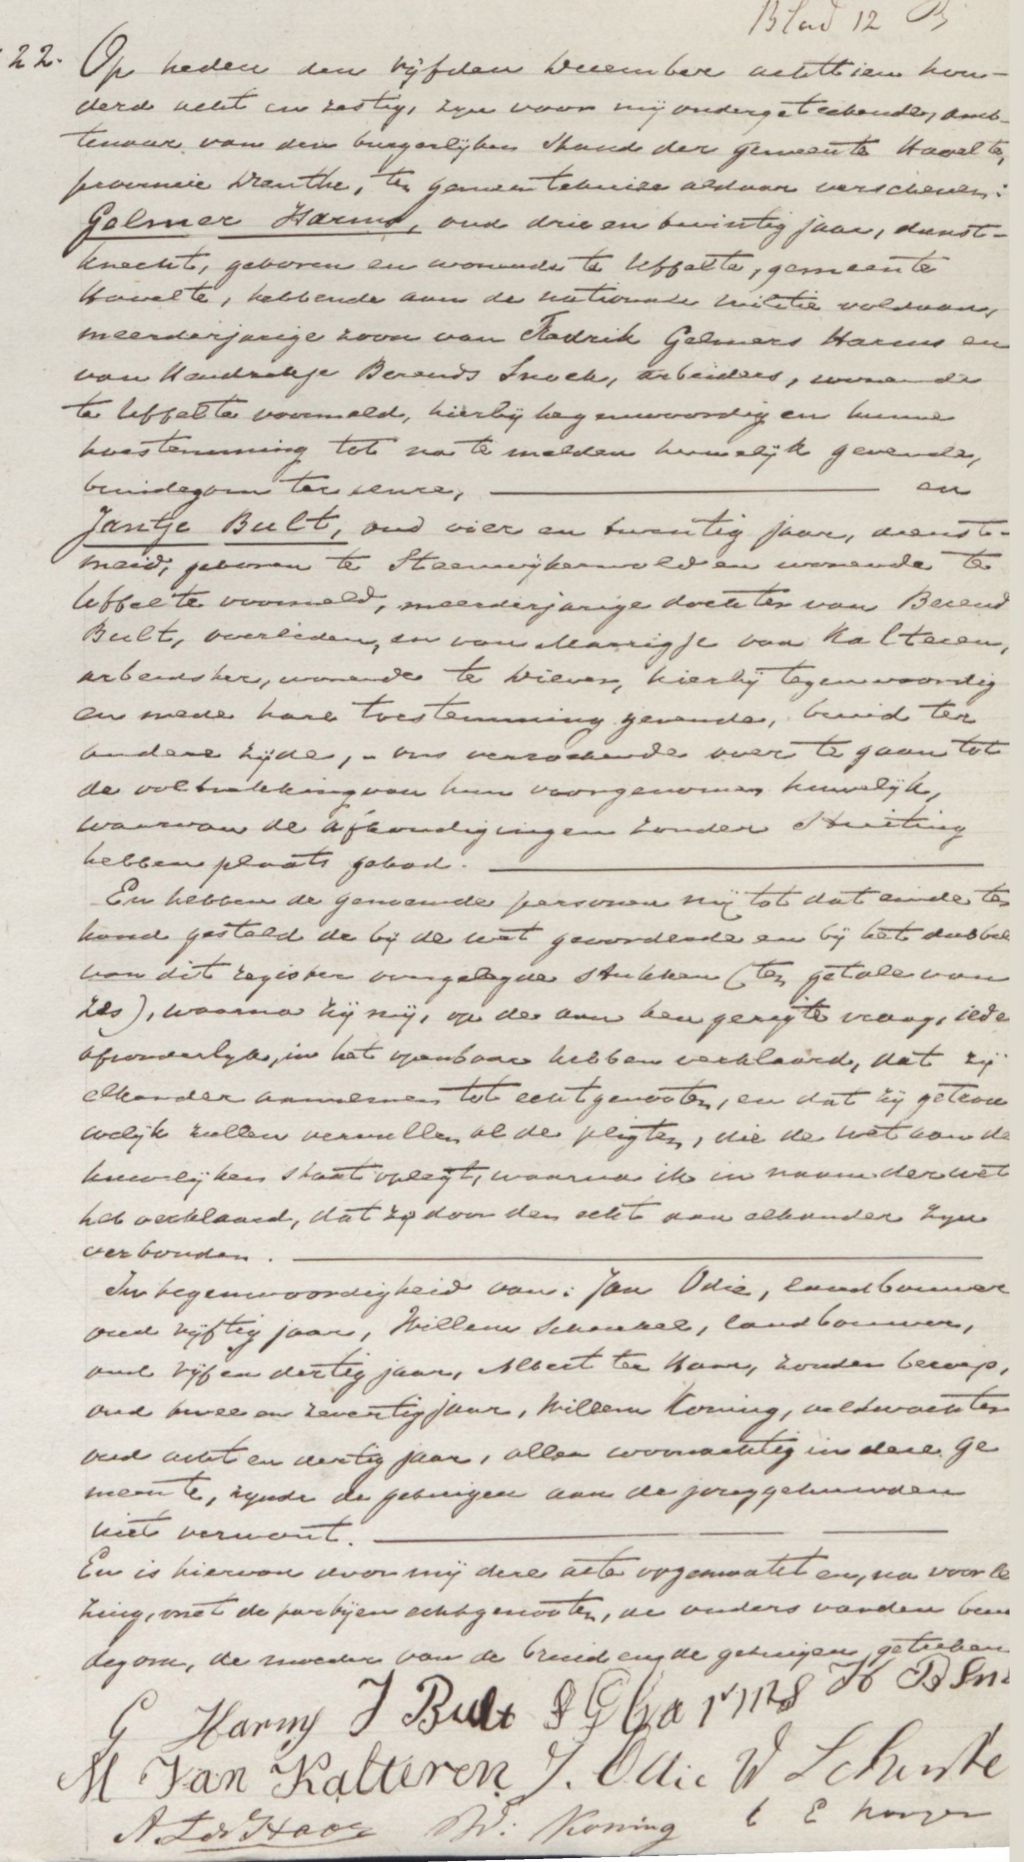 Blad 12 B
22. Op heden den vijfden December achttien hon-
derd acht en zestig, zijn voor mij ondergeteekende, amb-
tenaar van den burgerlijken Stand der gemeente Havelte,
provincie Drenthe, ten gemeentehuize aldaar verschenen:
Gelmer Harms, oud drie en twintig jaar, dienst-
knecht, geboren en wonende te Uffelte, gemeente
Havelte, hebbende aan de nationale militie voldaan,
meerderjarige zoon van Fredrik Gelmers Harms en
van Hendrikje Berends Snoek, arbeiders, wonende
te Uffelte voormeld, hierbij tegenwoordig en hunne
toestemming tot na te melden huwelijk gevende,
bruidegom ter eenre, en
Jantje Bult, oud vier en twintig jaar, dienst-
meid, geboren te Steenwijkerwold en wonende te
Uffelte voormeld, meerderjarige dochter van Berend
Bult, overleden, en van Marrigje van Kalteren,
arbeidster, wonende te Diever, hierbij tegenwoordig
en mede hare toestemming gevende, bruid ter
andere zijde, ons verzoekende over te gaan tot
de voltrekking van hun voorgenomen huwelijk,
waarvan de afkondigingen zonder Stuiting
hebben plaats gehad.
En hebben de genoemde personen mij tot dat einde ter
hand gesteld de bij de wet gevorderde en bij het dubbel
van dit register overgelegde stukken (ten getale van
zes), waarna zij mij, op de aan hen gerigte vraag, iede
afzonderlijk, in het openbaar hebben verklaard, dat zij
elkander aannemen tot echtgenooten, en dat zij getrou
welijk zullen vervullen al de pligten, die de wet aan de
huwelijken staat oplegt, waarna ik in naam der wet
heb verklaard, dat zij door den echt aan elkander zijn
verbonden.
In tegenwoordigheid van: Jan Odie, landbouwer
oud vijftig jaar, Willem Schenkel, landbouwer,
oud vijf en dertig jaar, Albert ter Haar, zonder beroep,
oud twee en zeventig jaar, Willem Koning, veldwachter
oud acht en dertig jaar, allen woonachtig in deze ge
meente, zijnde de getuigen aan de jonggehuwden
niet verwant.
En is hiervan door mij deze acte opgemaakt en, na voorle
zing, met de partijen echtgenooten, de ouders van den brui
degom, de moeder van de bruid en de getuigen geteekend
G Harms J Bult F G Harms H B Sn
M Van Kalteren J. Odie W Schenke
A. ter Haar W: Koning